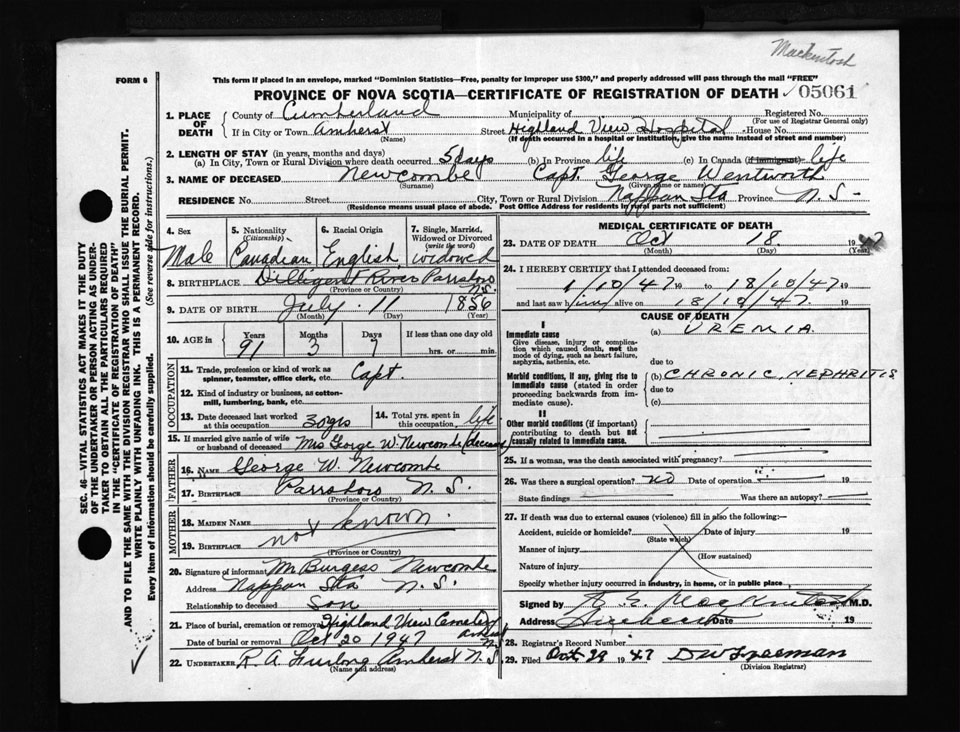 Mackintosh
FORM 6
This form if placed in an envelope, marked "Dominion Statistics—Free, penalty for improper use $300," and properly addressed will pass through the mail "FREE"
PROVINCE OF NOVA SCOTIA—CERTIFICATE OF REGISTRATION OF DEATH 05061
1. PLACE OF DEATH County of Cumberland Municipality of Registered No.
(For use of Registrar General only)
If in City or Town Amherst Street Highland View Hospital House No.
(Name) (If death occurred in a hospital or institution, give the name instead of street and number)
2. LENGTH OF STAY (in years, months and days)
(a) In City, Town or Rural Division where death occurred 5 days (b) In Province life (c) In Canada (if immigrant) life
3. NAME OF DECEASED Newcombe Capt. George Wentworth
(Surname) (Given name or names)
RESIDENCE No. Street City, Town or Rural Division Nappan Sta Province N.S-
(Residence means usual place of abode. Post Office Address for residents in rural parts not sufficient)
4. Sex 5. Nationality (Citizenship) 6. Racial Origin 7. Single, Married, Widowed or Divorced (write the word)
Male Canadian English widowed
8. BIRTHPLACE Dilligent River Parrsboro N.S.
(Province or Country)
9. DATE OF BIRTH July 11 1856
(Month) (Day) (Year)
10. AGE in Years Months Days If less than one day old
91 3 7 hrs. or min.
OCCUPATION
11. Trade, profession or kind of work as spinner, teamster, office clerk, etc. Capt.
12. Kind of industry or business, as cotton-mill, lumbering, bank, etc.
13. Date deceased last worked at this occupation 30 yrs 14. Total yrs. spent in this occupation life
15. If married give name of wife or husband of deceased Mrs George W. Newcombe (deceased)
FATHER
16. NAME George W. Newcombe
17. BIRTHPLACE Parrsboro N.S.
(Province or Country)
MOTHER
18. MAIDEN NAME
19. BIRTHPLACE not known.
(Province or Country)
20. Signature of informant M Burgess Newcombe
Address Nappan Sta N.S.
Relationship to deceased Son
21. Place of burial, cremation or removal Highland View Cemetery Amherst N.S.
Date of burial or removal Oct 20 1947
22. UNDERTAKER R. A. Furlong Amherst N.S.
(Name and address)
MEDICAL CERTIFICATE OF DEATH
23. DATE OF DEATH Oct 18. 1947
(Month) (Day) (Year)
24. I HEREBY CERTIFY that I attended deceased from:
1/10/47 19 to 18/10/47 19
and last saw him alive on 18/10/47. 19
CAUSE OF DEATH
I
Immediate cause (a) UREMIA
Give disease, injury or complication which caused death, not the mode of dying, such as heart failure, asphyxia, asthenia, etc.
due to
Morbid conditions, if any, giving rise to immediate cause (stated in order proceeding backwards from immediate cause).
(b) CHRONIC, NEPHRITIS
due to
(c)
II
Other morbid conditions (if important) contributing to death but not causally related to immediate cause.
25. If a woman, was the death associated with pregnancy?
26. Was there a surgical operation? NO Date of operation
State findings Was there an autopsy?
27. If death was due to external causes (violence) fill in also the following:—
Accident, suicide or homicide? Date of injury 19
(State which)
Manner of injury
(How sustained)
Nature of injury
Specify whether injury occurred in industry, in home, or in public place
Signed by Mackintosh M.D.
Address Date 19
28. Registrar's Record Number
29. Filed Oct. 29 1947 D W Freeman
(Division Registrar)
SEC. 46—VITAL STATISTICS ACT MAKES IT THE DUTY
OF THE UNDERTAKER OR PERSON ACTING AS UNDER-
TAKER TO OBTAIN ALL THE PARTICULARS REQUIRED
IN THE "CERTIFICATE OF REGISTRATION OF DEATH"
AND TO FILE THE SAME WITH THE DIVISION REGISTRAR WHO SHALL ISSUE THE BURIAL PERMIT.
WRITE PLAINLY WITH UNFADING INK. THIS IS A PERMANENT RECORD.
Every item of information should be carefully supplied. (See reverse side for instructions.)